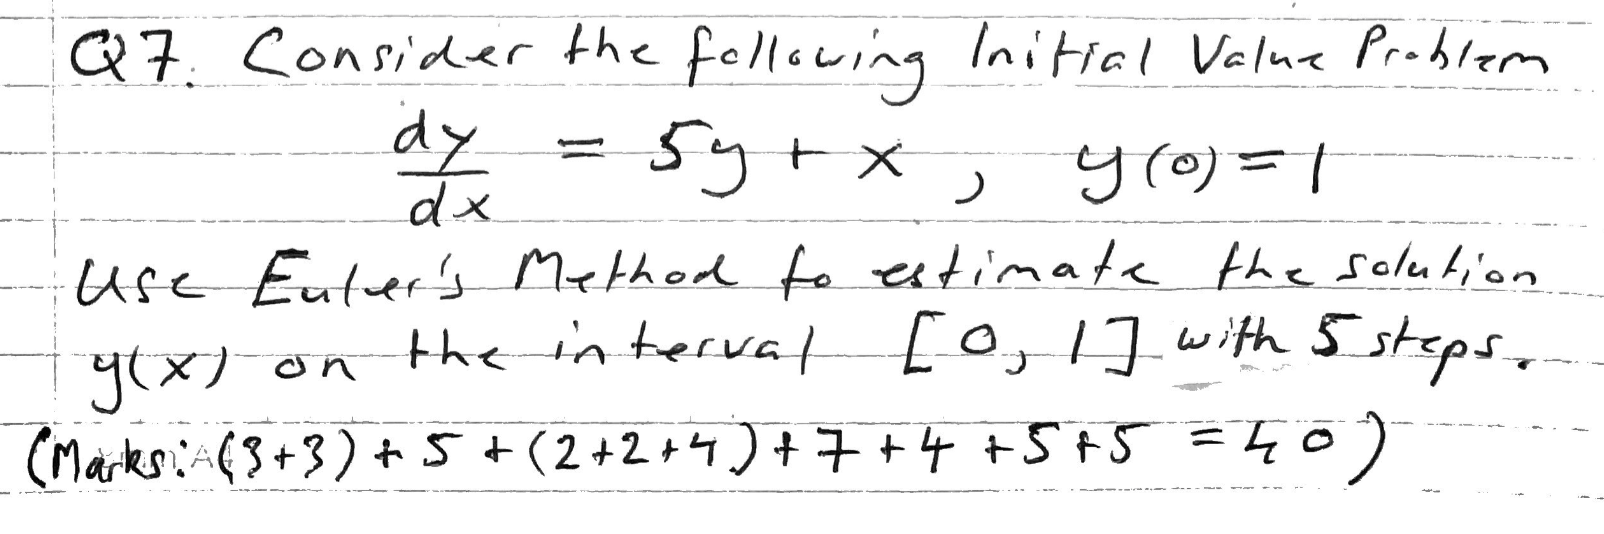 Q7. Consider the following Initial Value Problem
dy/dx = 5y + x, y(0) = 1
Use Euler's Method to estimate the solution
y(x) on the interval [0, 1] with 5 steps.
(Marks: (3+3) + 5 + (2+2+4) + 7 + 4 + 5 + 5 = 40)